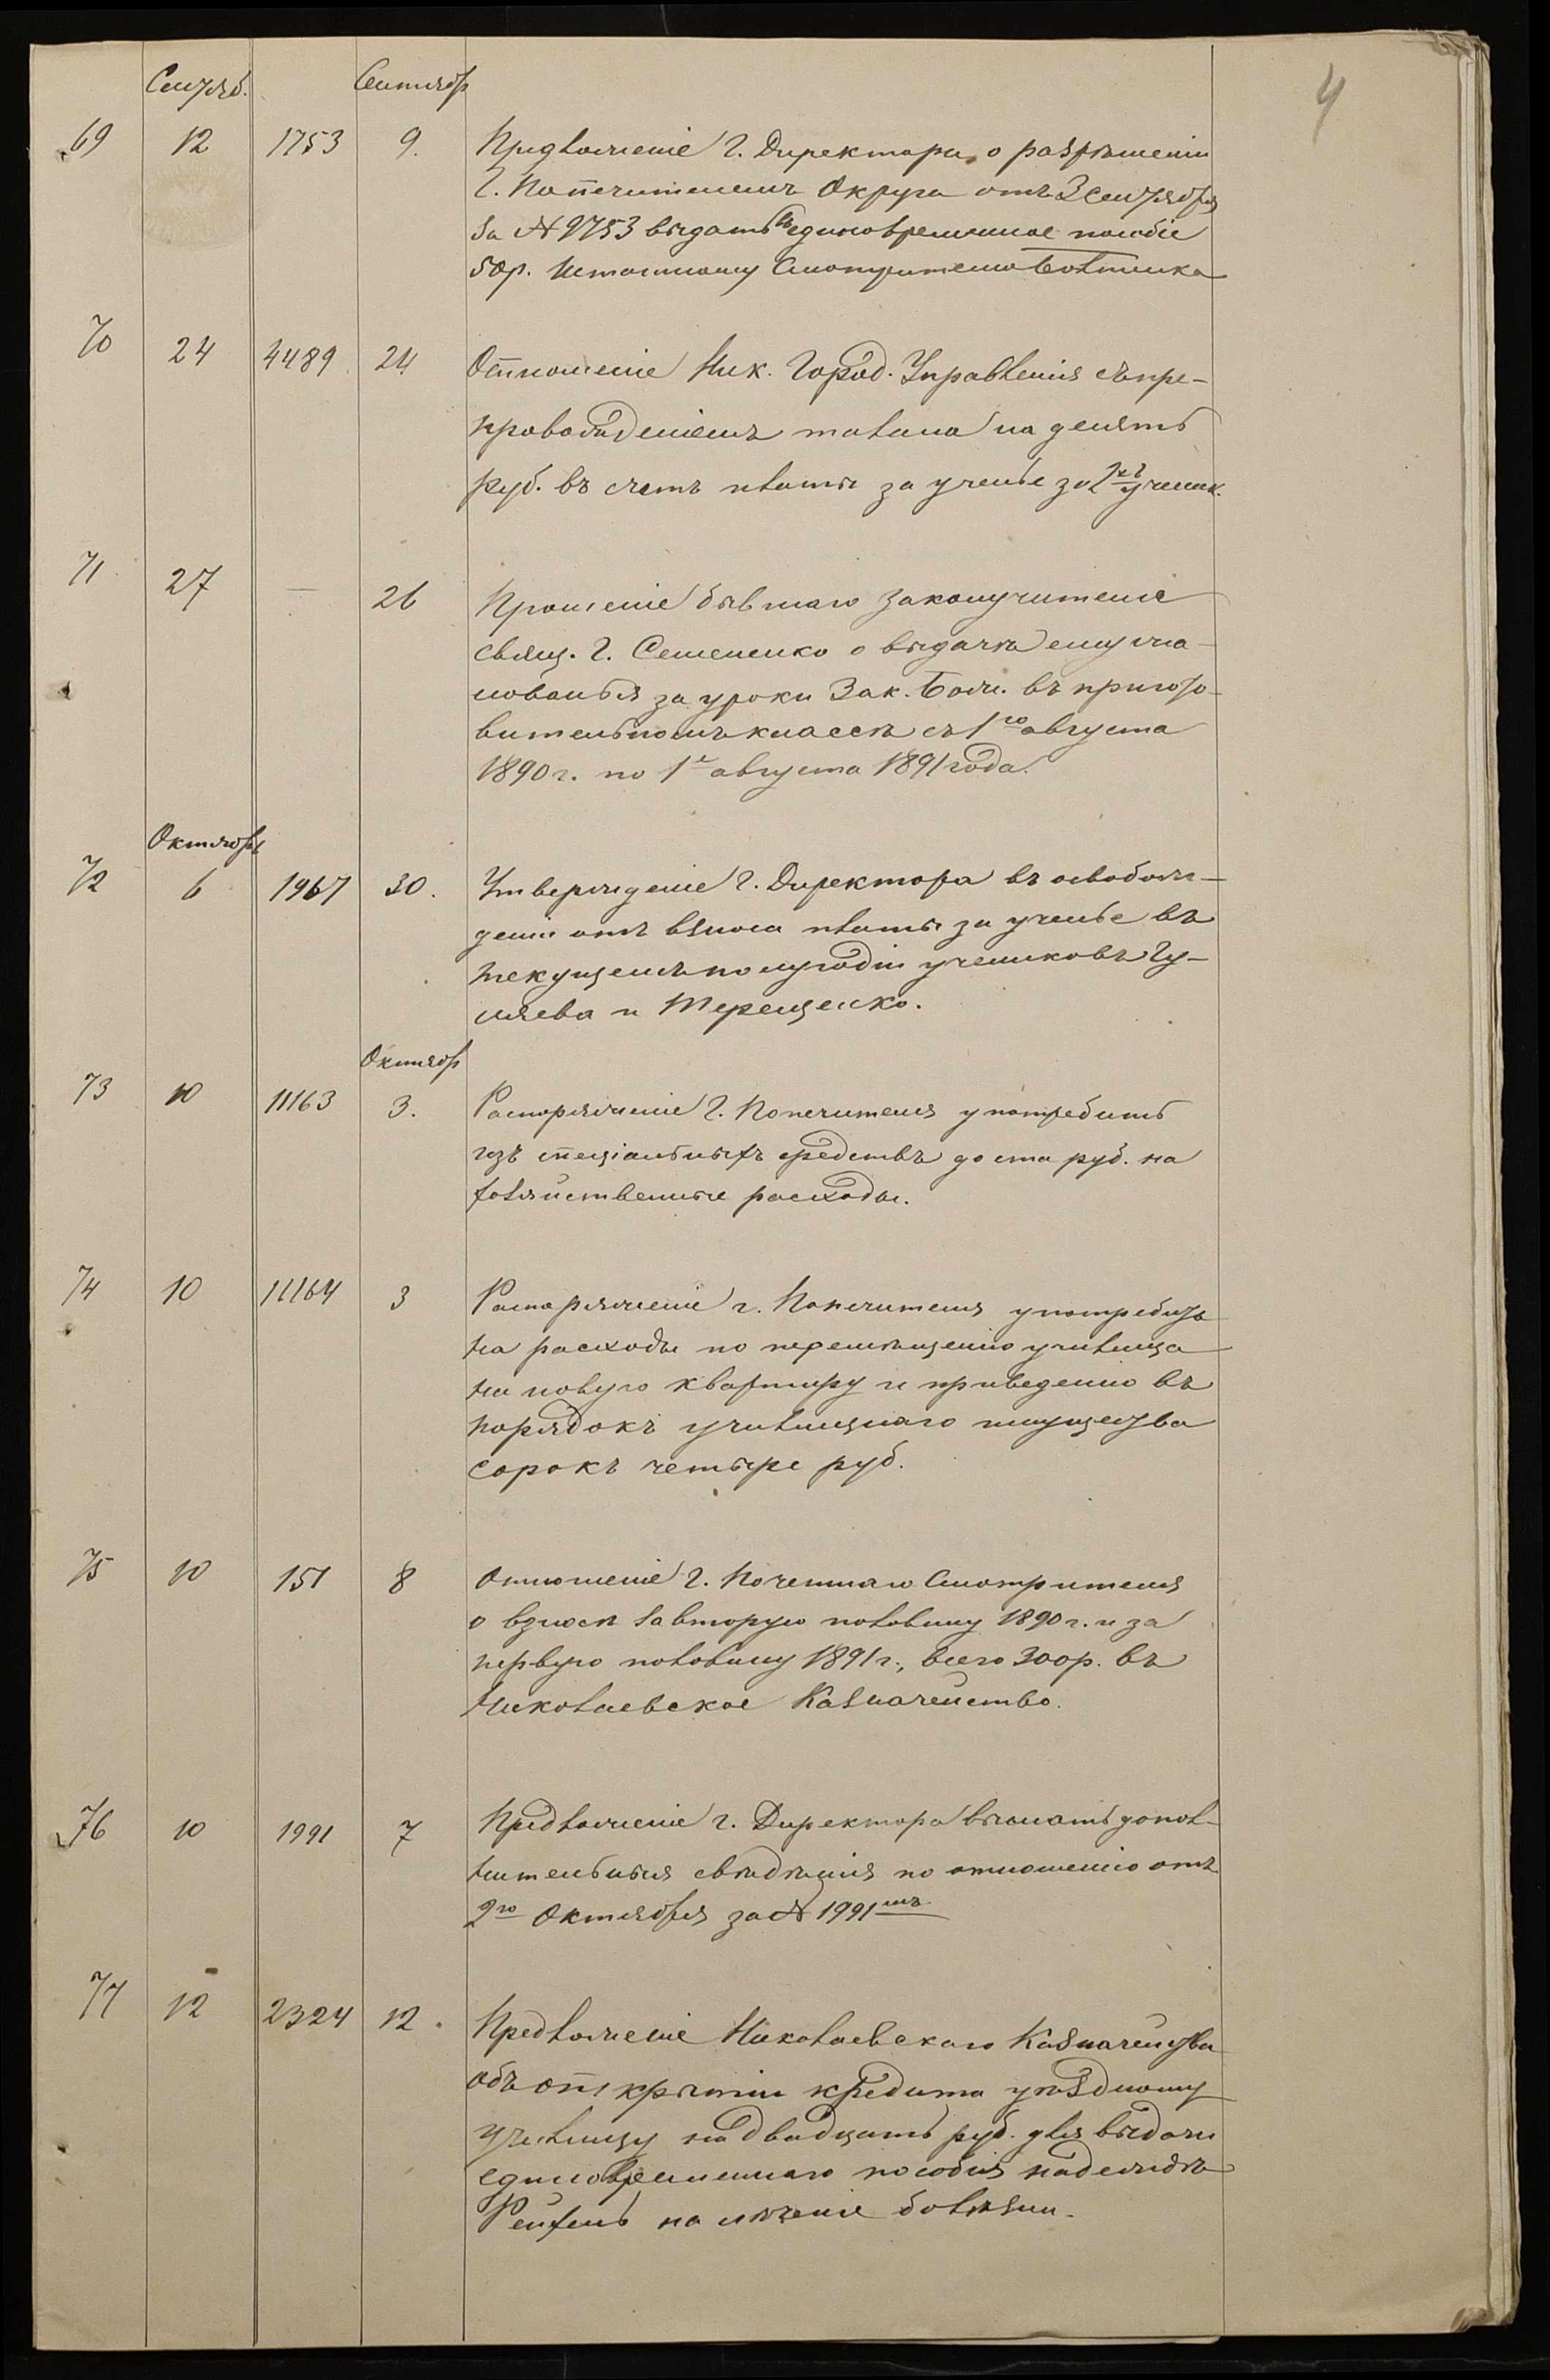 4
Сентяб. Сентябр
69 12 1753 9. Предложеніе Г. Директора, о разрѣшеніи
Г. Попечителемъ Округа отъ 3 сентября
за № 9753 выдать въ единовременное пособіе
50 р. Штатному Смотрителю
70 24 4489 24 Отношеніе Ник. Город. Управленія съ пре-
провожденіемъ талона на девять
руб. въ счетъ платы за ученье за 2хъ ученик.
71 27 — 26 Прошеніе бывшаго законоучителя
свящ. Г. Семененко о выдачѣ ему жа-
лованья за уроки Зак. Бож. въ пригото-
вительномъ классѣ съ 1го августа
1890 г. по 1е августа 1891 года.
Октябрь
72 6 1967 30. Утвержденіе Г. Директора въ освобож-
деніи отъ взноса платы за ученье въ
текущемъ полугодіи учениковъ Гу-
ляева и Терещенко.
Октябр
73 10 11163 3. Распоряженіе Г. Попечителя употребить
изъ спеціальныхъ средствъ до ста руб. на
хозяйственные расходы.
74 10 11164 3 Распоряженіе г. Попечителя употребить
на расходы по перемѣщенію училища
на новую квартиру и приведенію въ
порядокъ училищнаго имущества
сорокъ четыре руб.
75 10 151 8 Отношеніе Г. Почетнаго Смотрителя
о взносѣ за вторую половину 1890 г. и за
первую половину 1891 г., всего 300 р. въ
Николаевское Казначейство.
76 10 1991 7 Предложеніе г. Директора выслать допол-
нительныя свѣдѣнія по отношенію отъ
2го Октября за № 1991мъ
77 12 2324 12. Предложеніе Николаевскаго Казначейства
объ открытіи кредита уѣздному
училищу на двадцать руб. для выдачи
единовременнаго пособія
на лѣченіе болѣзни.